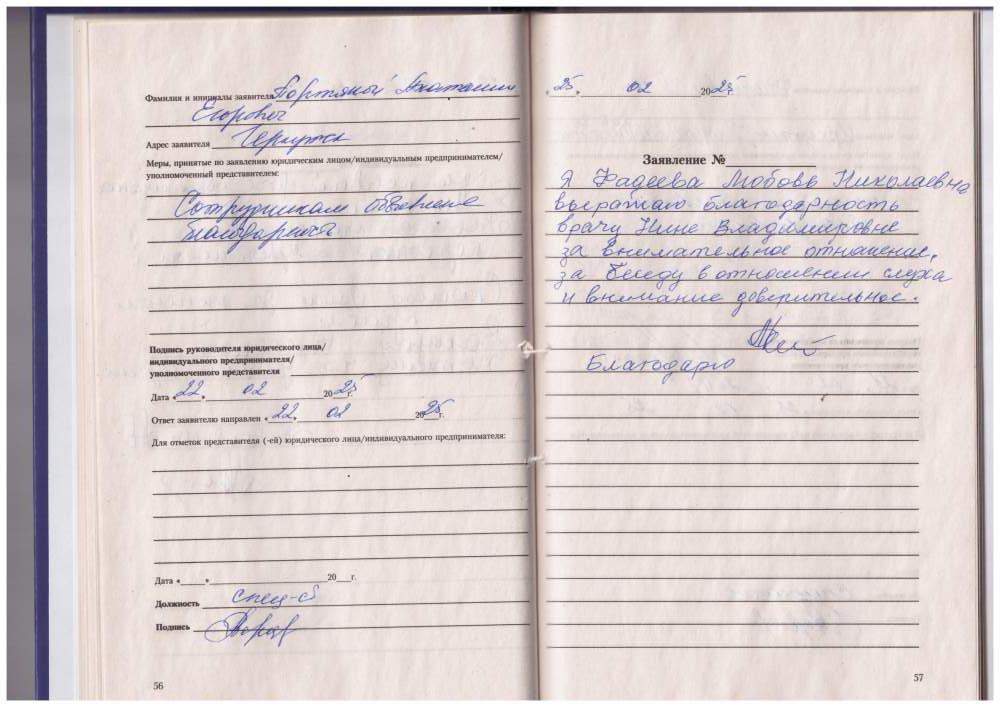 Фамилия и инициалы заявителя Портяной
Егорович
Адрес заявителя
Меры, принятые по заявлению юридическим лицом/индивидуальным предпринимателем/
уполномоченный представителем:
Сотрудникам объявлена
благодарность
Подпись руководителя юридического лица/
индивидуального предпринимателя/
уполномоченного представителя
Дата «22» 02 2025г.
Ответ заявителю направлен «22» 02 2025г.
Для отметок представителя (-ей) юридического лица/индивидуального предпринимателя:
Дата «____»____________20___г.
Должность спец-т
Подпись
56
«25» 02 2025г.
Заявление №
Я Фадеева Любовь Николаевна
выражаю благодарность
врачу Нине Владимировне
за внимательное отношение,
за беседу в отношении слуха
и внимание доверительное.
Благодарю
57